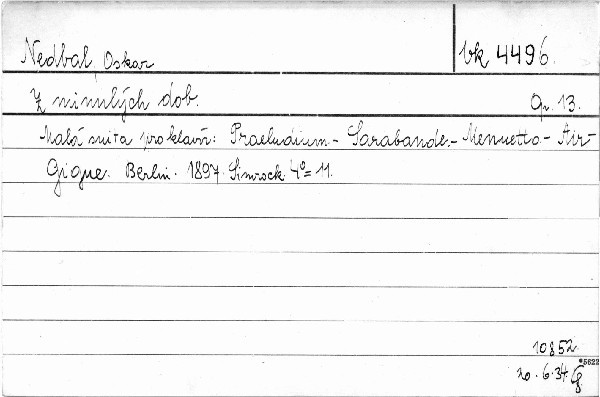 Nedbal, Oskar
vk 4496.
Z minulých dob.
Op. 13.
Malá suita pro klavír: Praeludium.- Sarabande.- Menuetto.- Air-
Gigue. Berlin. 1897. Simrock. 4º= 11.
10852.
*5622
20.6.34.